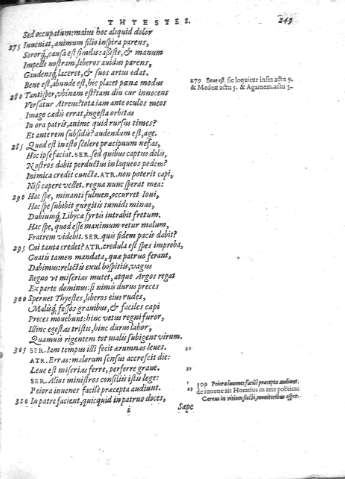 THYESTES. 249
Sed occupatum: maius hoc aliquid dolor
275 Inueniat, animum filio inspira parens,
Sororq́, causa est similis: assiste, & manum
Impelle nostram, liberos auidus parens,
Gaudensq́ laceret, & suos artus edat.
Bene est, abunde est, hic placet pœnæ modus
280 Tantisper, vbinam est? tam diu cur innocens
Versatur Atreus? tota iam ante oculos meos
Imago cædis errat, ingesta orbitas
In ora patris, anime quid rursus times?
Et ante rem subsidis? audendum est, age.
285 Quod est in isto scelere præcipuum nefas,
Hoc ipse faciat. SER. sed quibus captus dolis,
Nostros dabit perductus in laqueos pedem?
Inimica credit cuncta. ATR. non poterit capi,
Nisi capere vellet. regna nunc sperat mea:
290 Hac spe, minanti fulmen, occurret Ioui,
Hac spe subibit gurgitis tumidi minas,
Dubiumq́, Libycæ syrtis intrabit fretum.
Hac spe, quod esse maximum retur malum,
Fratrem videbit. SER. quis fidem pacis dabit?
295 Cui tanta credet? ATR. credula est spes improba,
Gnatis tamen mandata, quæ patruo ferant,
Dabimus: relictis exul hospitiis, vagus
Regno vt miserias mutet, atque Argos regat
Ex parte dominus: si nimis durus preces
300 Spernet Thyestes, liberos eius rudes,
Malisq́, fessos grauibus, & faciles capi
Preces mouebunt: hinc vetus regni furor,
Illinc egestas tristis, hinc durus labor,
Quamuis rigentem tot malis subigent virum.
305 SER. Iam tempus illi fecit ærumnas leues.
ATR. Erras: malorum sensus accrescit die:
Leue est miserias ferre, perferre graue.
SER. Alios ministros consilii istis lege:
Peiora iuuenes facilè præcepta audiunt.
310 In patre facient, quicquid in patruo doces,
i Sæpe
279 Bene est sic loquitur infra actu 5.
& Medeæ actu 5. & Agamem. actu 5.
309 Peiora iuuenes facilè præcepta audiunt.
de iuuene ait Horatius in arte poëtica:
Cereus in vitium flecti, monitoribus asper.